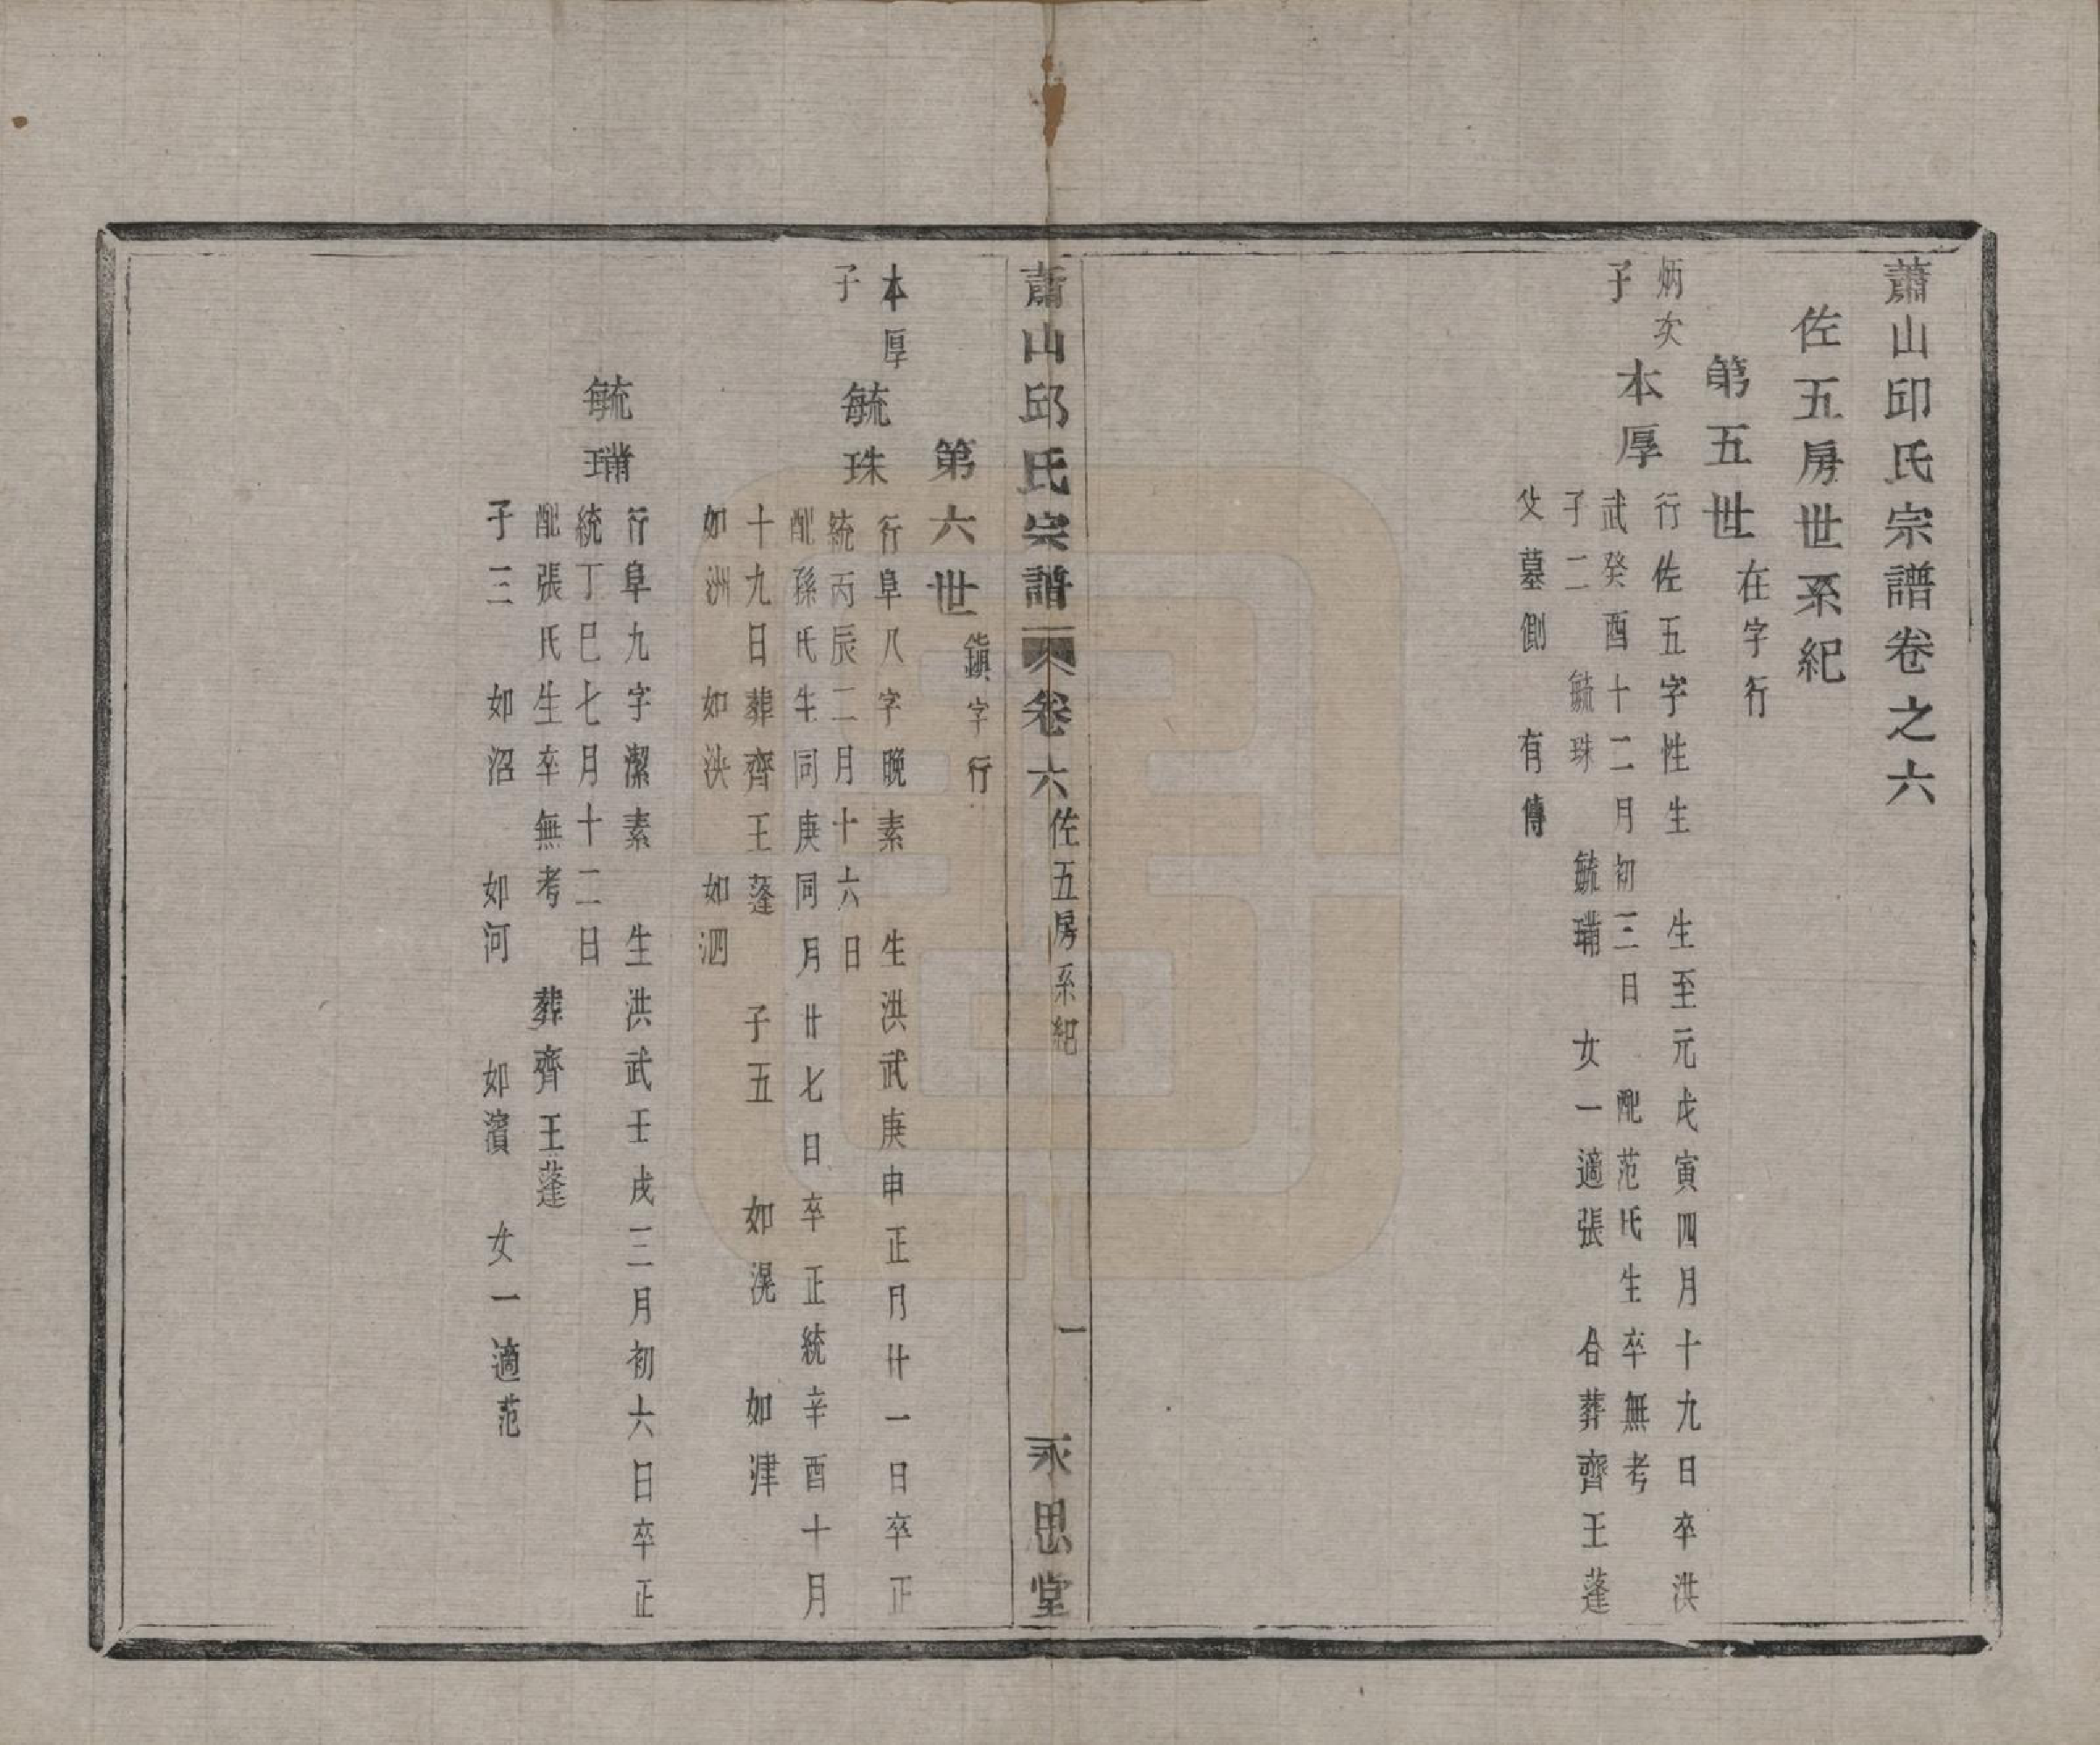 蕭山邱氏宗譜卷之六
佐五房世系紀
第五世在字行
炳次子
本厚
行佐五字性生　生至元戊寅四月十九日卒洪
武癸酉十二月初三日　配范氏生卒無考
子二　毓珠　毓璊　女一適張　合葬齊王蓬
父墓側　有傳
蕭山邱氏宗譜　卷六　佐五房系紀　一　永思堂
第六世鎮字行
本厚子
毓珠
行阜八字晚素　生洪武庚申正月廿一日卒正
統丙辰二月十六日
配孫氏生同庚同月廿七日卒正統辛酉十月
十九日葬齊王蓬　子五　如滉　如津
如洲　如泱　如泗
毓璊
行阜九字潔素　生洪武壬戌三月初六日卒正
統丁巳七月十二日
配張氏生卒無考　葬齊王蓬
子三　如沼　如河　如濱　女一適范